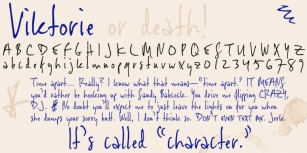 Viktorie or death!
ABCDEFGHIJKLMNOPQRSTUVWXYZ
abcdefghijklmnopqrstuvwxyz0123456789
Time apart... Really? I know what that means—"time apart." IT MEANS
you'd rather be hooking up with Sandy Babcock. You drive me flipping CRAZY,
D.J. & No doubt you'll expect me to just leave the lights on for you when
she dumps your sorry butt. Well, I don't think so. DON'T EVEN TEXT ME. Jerk.
It's called "character."